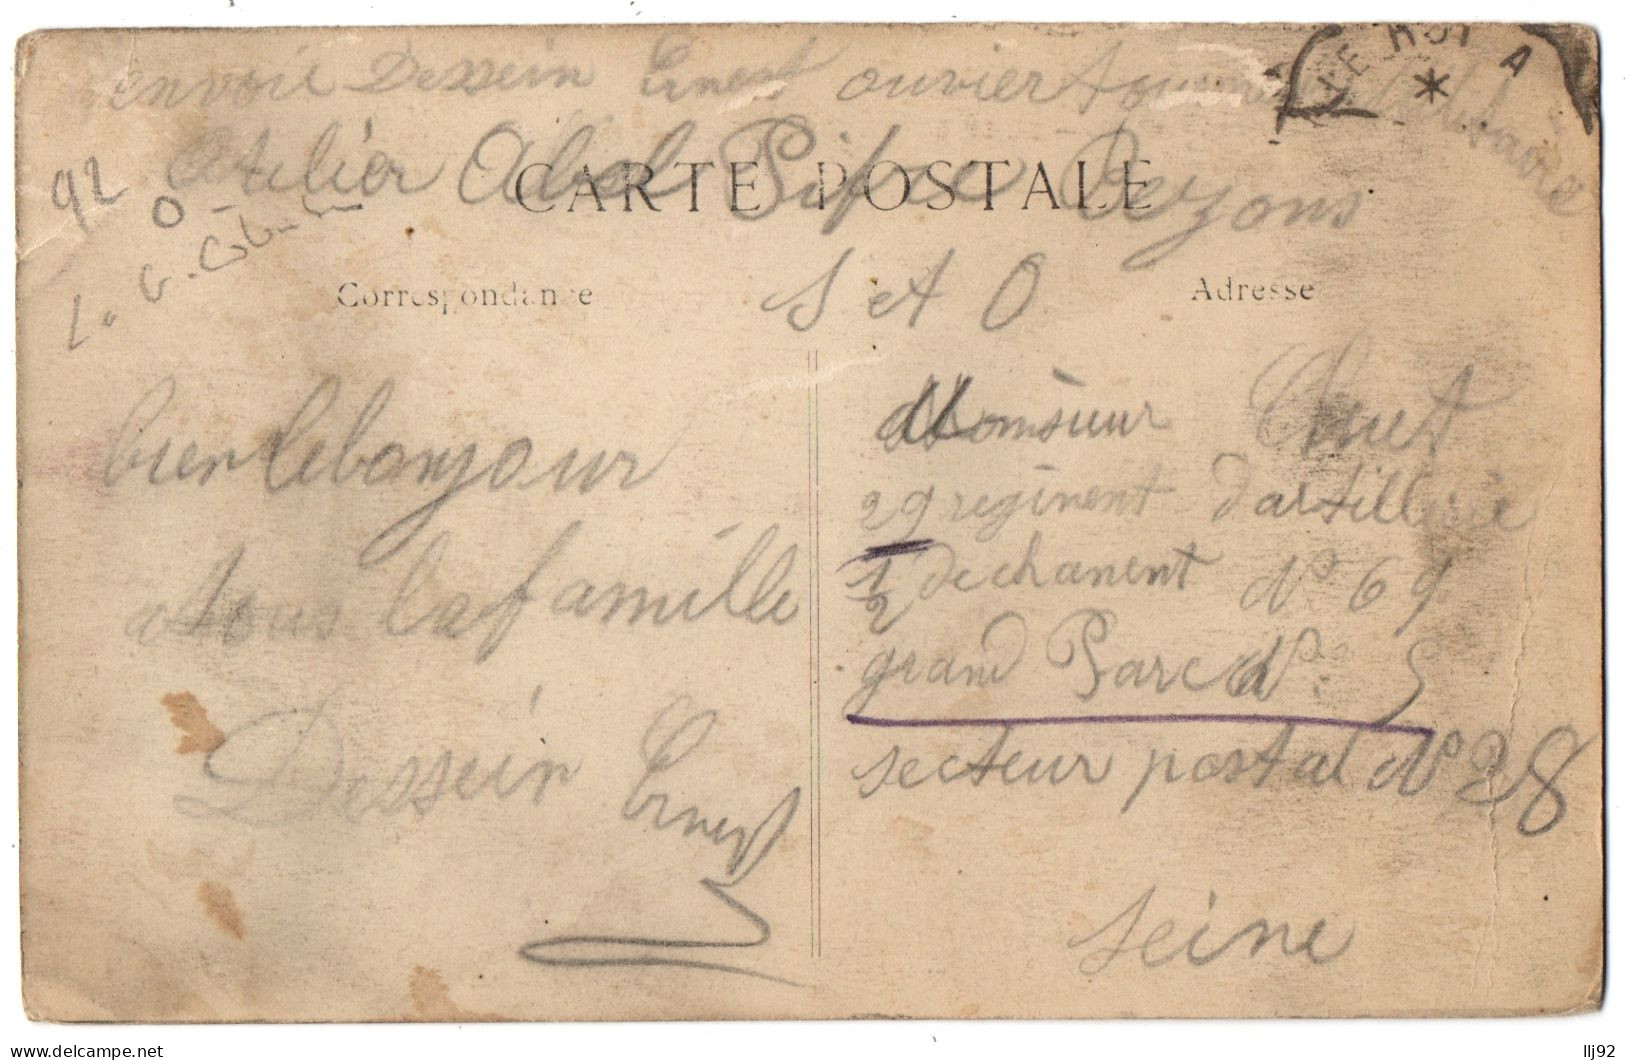 envoie Dessein Ernest ouvier
Atelier Abel Pifre Bezons
S et O
92
CARTE POSTALE
Correspondance
Adresse
bien le bonjour
a tous la famille
Dessein Ernest
Monsieur
29 regiment d'artillerie
1/2 dechanent N° 69
grand Parc N° 5
secteur postal N° 28
Seine
A
llj92